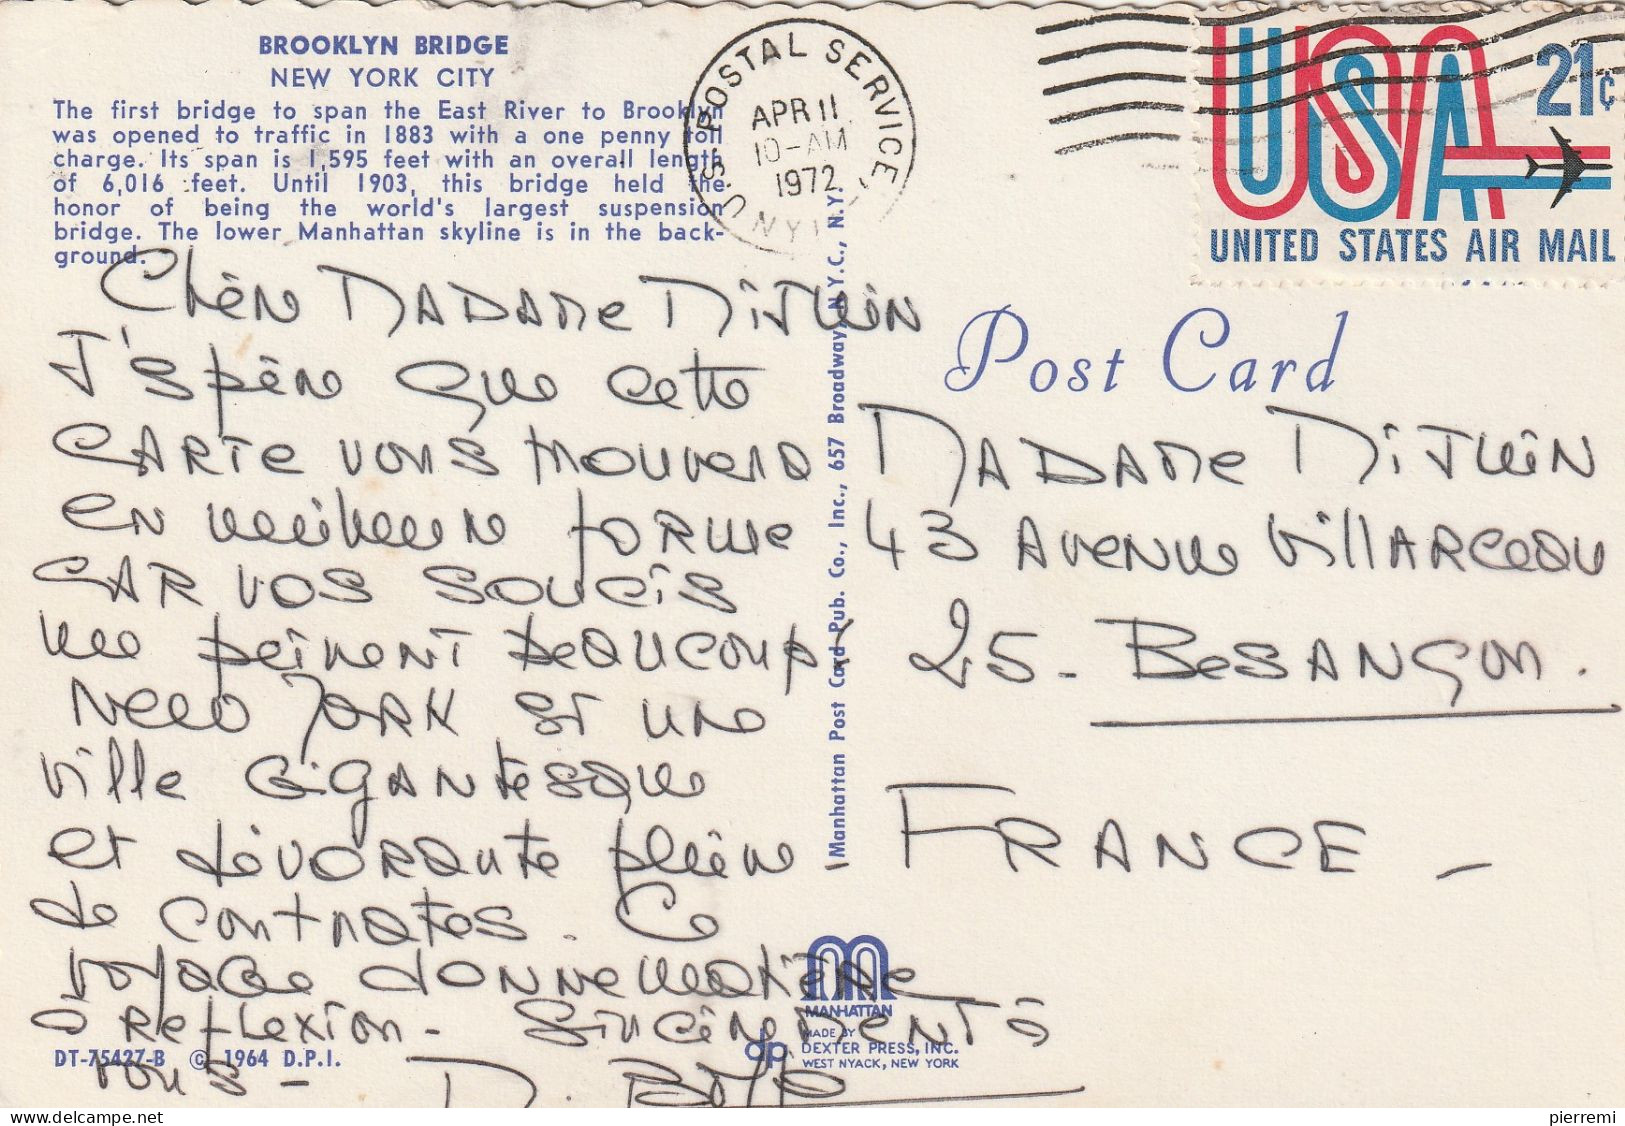 BROOKLYN BRIDGE
NEW YORK CITY
The first bridge to span the East River to Brooklyn
was opened to traffic in 1883 with a one penny toll
charge. Its span is 1,595 feet with an overall length
of 6,016 feet. Until 1903, this bridge held the
honor of being the world's largest suspension
bridge. The lower Manhattan skyline is in the back-
ground.
U.S. POSTAL SERVICE
APR 11
10-AM
1972
N.Y.
USA 21c
UNITED STATES AIR MAIL
Chère MADAME
J'espère que cette
CARTE vous trouvera
en meilleure forme
CAR vos soucis
me peinent beaucoup.
New York est une
ville Gigantesque
et dévorante pleine
de contrastes. Ce
voyage donne matière
à réflexion - Sincèrement à
vous -
Post Card
MADAME
43 Avenue VillARceau
25 - BesANÇon.
FRANCE -
Manhattan Post Card Pub. Co., Inc., 657 Broadway, N.Y.C., N.Y.
MANHATTAN
dp
MADE BY
DEXTER PRESS, INC.
WEST NYACK, NEW YORK
DT-75427-B © 1964 D.P.I.
pierremi